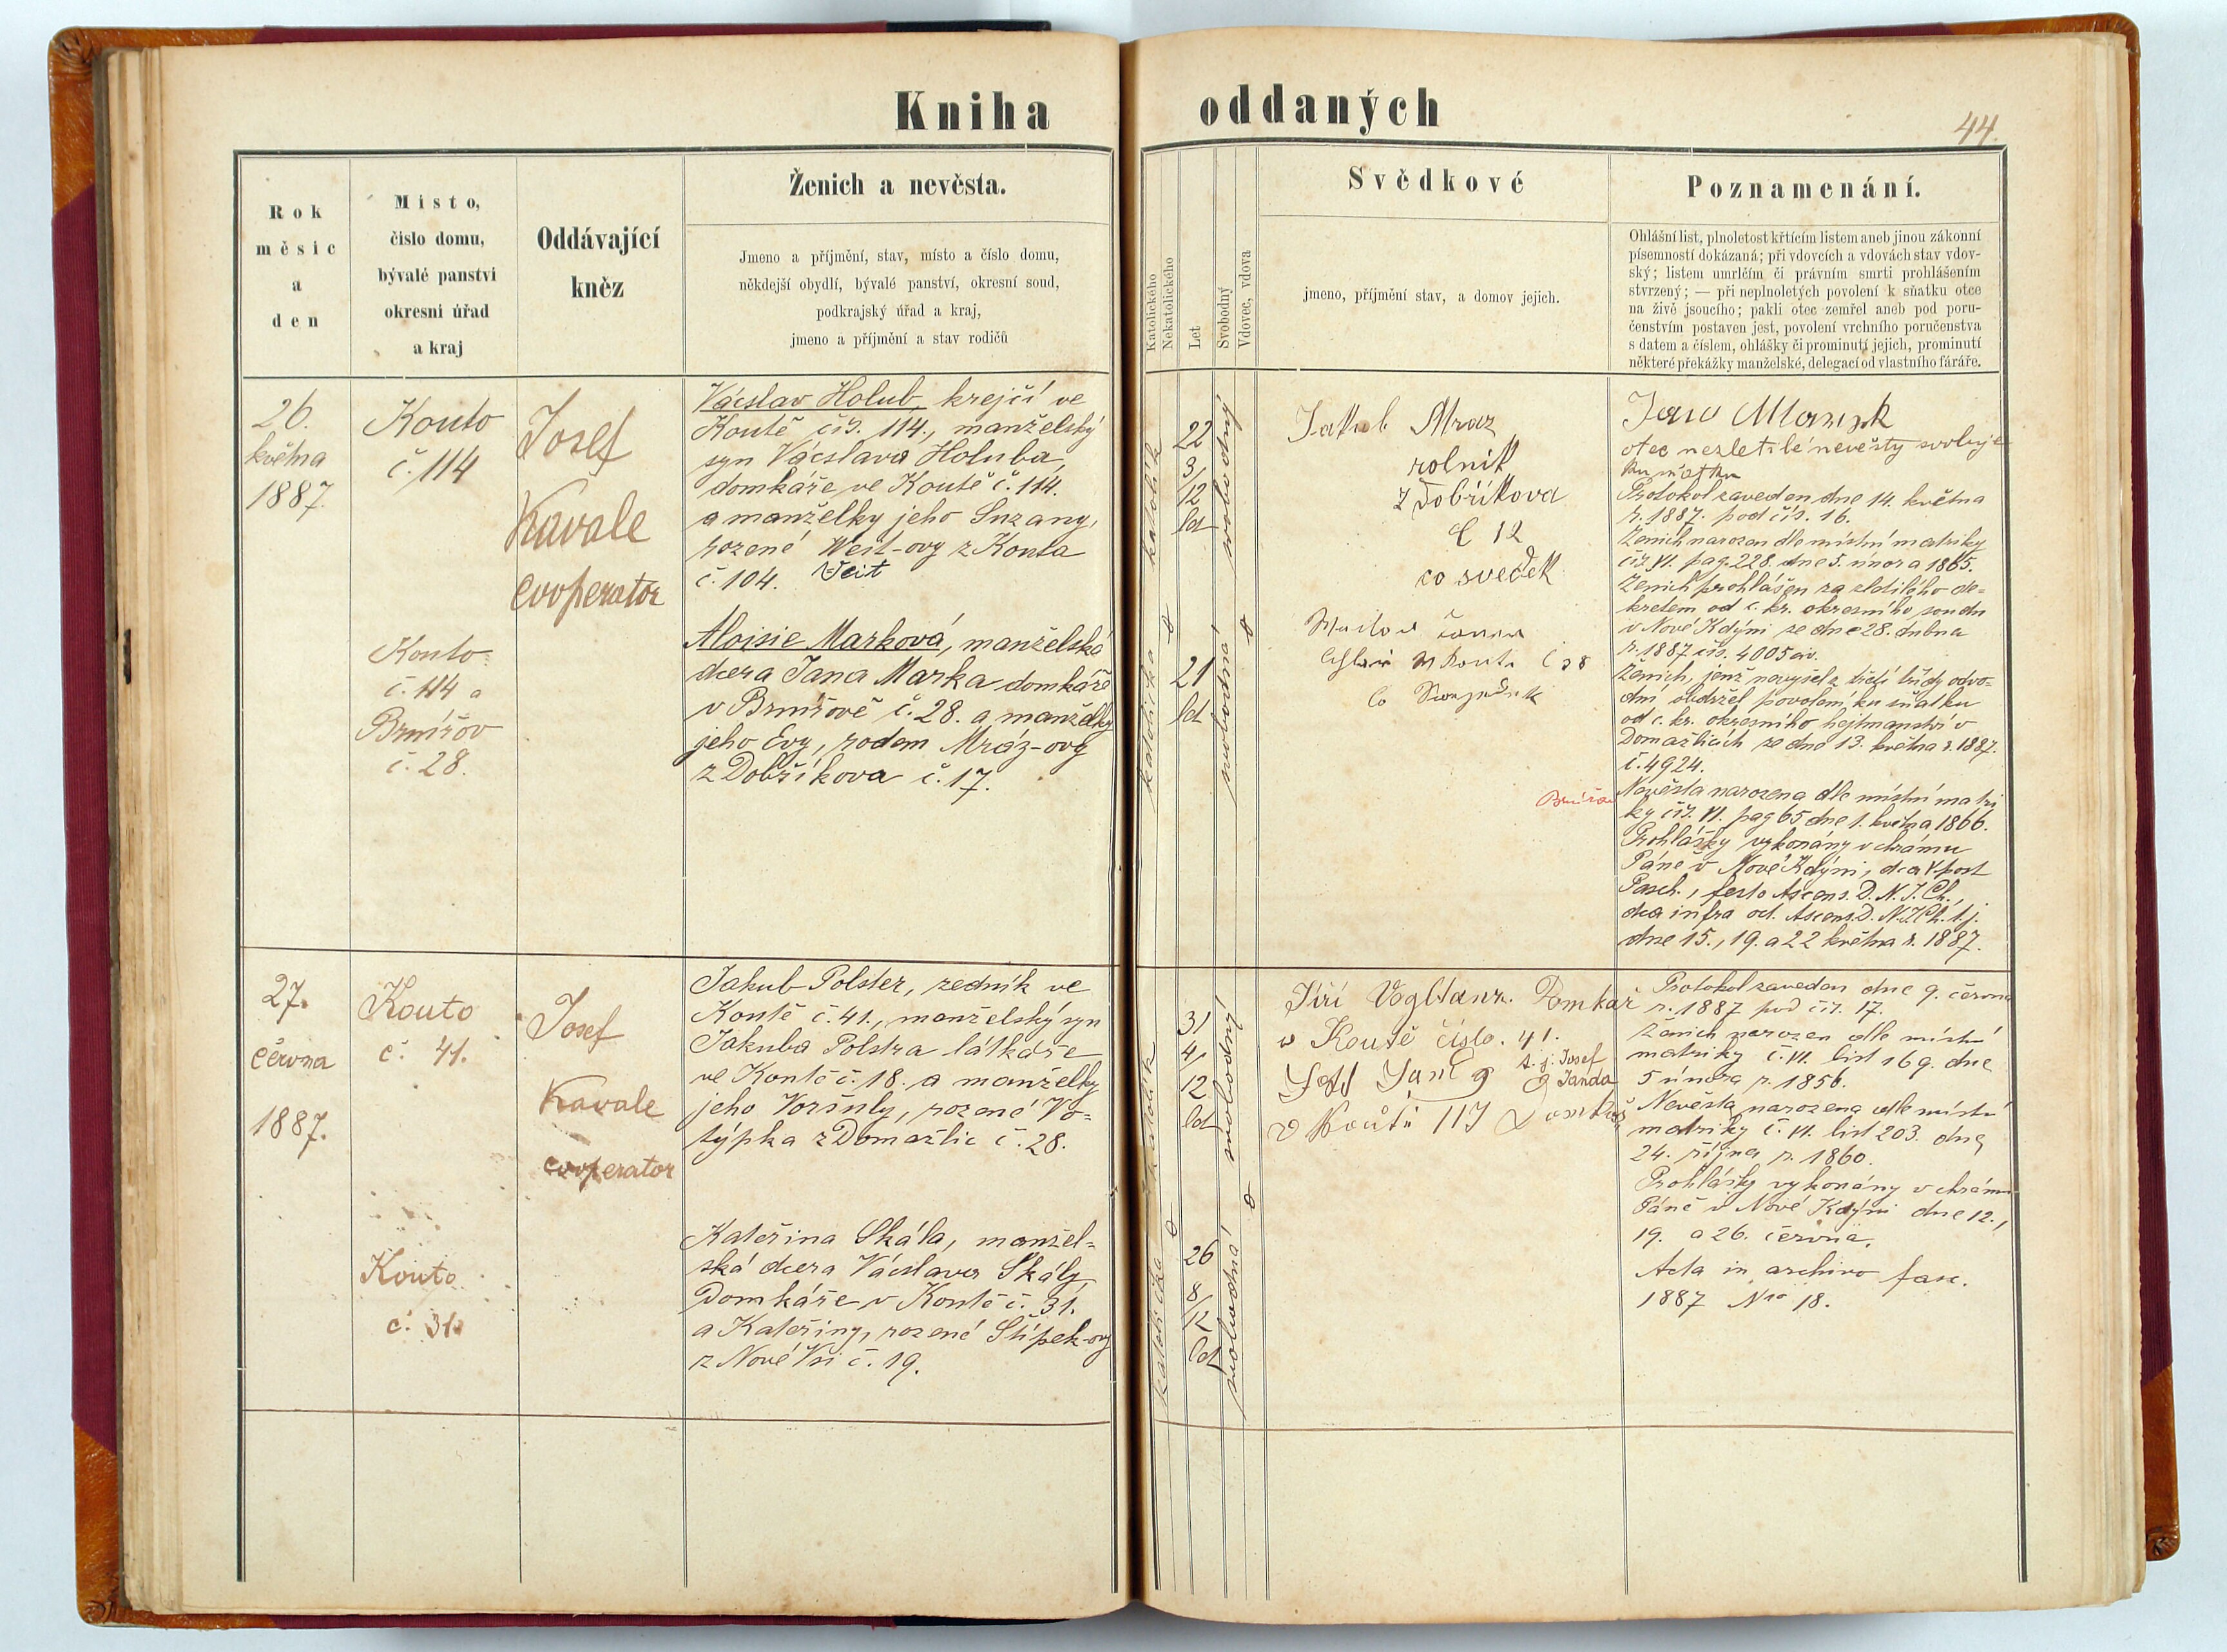 Kniha oddaných
44.
Rok
měsíc
a
den
Místo,
číslo domu,
bývalé panství
okresní úřad
a kraj
Oddávající
kněz
Ženich a nevěsta.
Jmeno a příjmění, stav, místo a číslo domu,
někdejší obydlí, bývalé panství, okresní soud,
podkrajský úřad a kraj,
jmeno a příjmění a stav rodičů
Katolického
Nekatolického
Let
Svobodný
Vdovec, vdova
Svědkové
jmeno, příjmění stav, a domov jejich.
Poznamenání.
Ohlášní list, plnoletost křtícím listem aneb jinou zákonní
písemností dokázaná; při vdovcích a vdovách stav vdov-
ský; listem umrlčím či právním smrti prohlášením
stvrzený; — při neplnoletých povolení k sňatku otce
na živě jsoucího; pakli otec zemřel aneb pod poru-
čenstvím postaven jest, povolení vrchního poručenstva
s datem a číslem, ohlášky či prominutí jejich, prominutí
některé překážky manželské, delegací od vlastního faráře.
26.
května
1887.
Kouto
č. 114
Josef
Kavale
cooperator
Václav Holub, krejčí ve
Koutě čís. 114., manželský
syn Václava Holuba,
domkáře ve Koutě č. 114.
a manželky jeho Suzany,
rozené Weit-ovy z Kouta
č. 104. Veit
Kouto
č. 114 a
Brnířov
č. 28.
Aloisie Marková, manželská
dcera Jana Marka domkáře
v Brnířově č. 28. a manželky
jeho Evy, rodem Mráz-ovy
z Dobříkova č. 17.
katolík
22
3/
12
let
svobodný
katolička
21
let
svobodná
Jakub Mraz
rolnik
z Dobříkova
č 12
co svedek
Jan Marek
otec nezletilé nevěsty svoluje
ku sňatku
Protokol zaveden dne 14. května
r. 1887. pod čís. 16.
Ženich narozen dle místní matriky
čís. VI. pag. 228. dne 5. února 1865.
Ženich prohlášen za zletilého de-
kretem od c. kr. okresního soudu
v Nové Kdyni ze dne 28. dubna
r. 1887 čís. 4005 civ.
Ženich, jenž nevyšel z třetí třídy odvo-
dní obdržel povolení ku sňatku
od c. kr. okresního hejtmanství v
Domažlicích ze dne 13. května r. 1887.
č. 4924.
Brnířov
Nevěsta narozena dle místní matri
ky čís. VI. pag 65 dne 1. května 1866.
Prohlášky vykonány v chrámu
Páně v Nové Kdyni, dca V. post
Pasch., festo Ascens. D. N. J. Ch.,
dca infra oct. Ascens. D. N. J. Ch. t. j.
dne 15., 19. a 22 května r. 1887.
27.
června
1887.
Kouto
č. 41.
Josef
Kavale
cooperator
Jakub Polster, zedník ve
Koutě č. 41., manželský syn
Jakuba Polstra látkáře
ve Koutě č. 18. a manželky
jeho Voršuly, rozené Vo=
týpka z Domažlic č. 28.
Kouto
č. 31.
Kateřina Skála, manžel=
ská dcera Václava Skály,
Domkáře v Koutě č. 31.
a Kateřiny, rozené Štípek-ovy
z Nové Vsi č. 19.
katolík
31
4/
12
let
svobodný
katolička
26
8/
12
let
svobodná
Jiří Vogltanz. Domkař
v Koutě číslo. 41.
t. j. Josef
Janda
v Koutě 117 Domkař
Protokol zaveden dne 9. června
r. 1887 pod čís. 17.
Ženich narozen dle místní
matriky č. VI. list 169. dne
5 února r. 1856.
Nevěsta narozena dle místní
matriky č. VI. list 203. dne
24. října r. 1860.
Prohlášky vykonány v chrámu
Páně v Nové Kdyni dne 12.,
19. a 26. června.
Acta in archivo fasc.
1887 Nro 18.